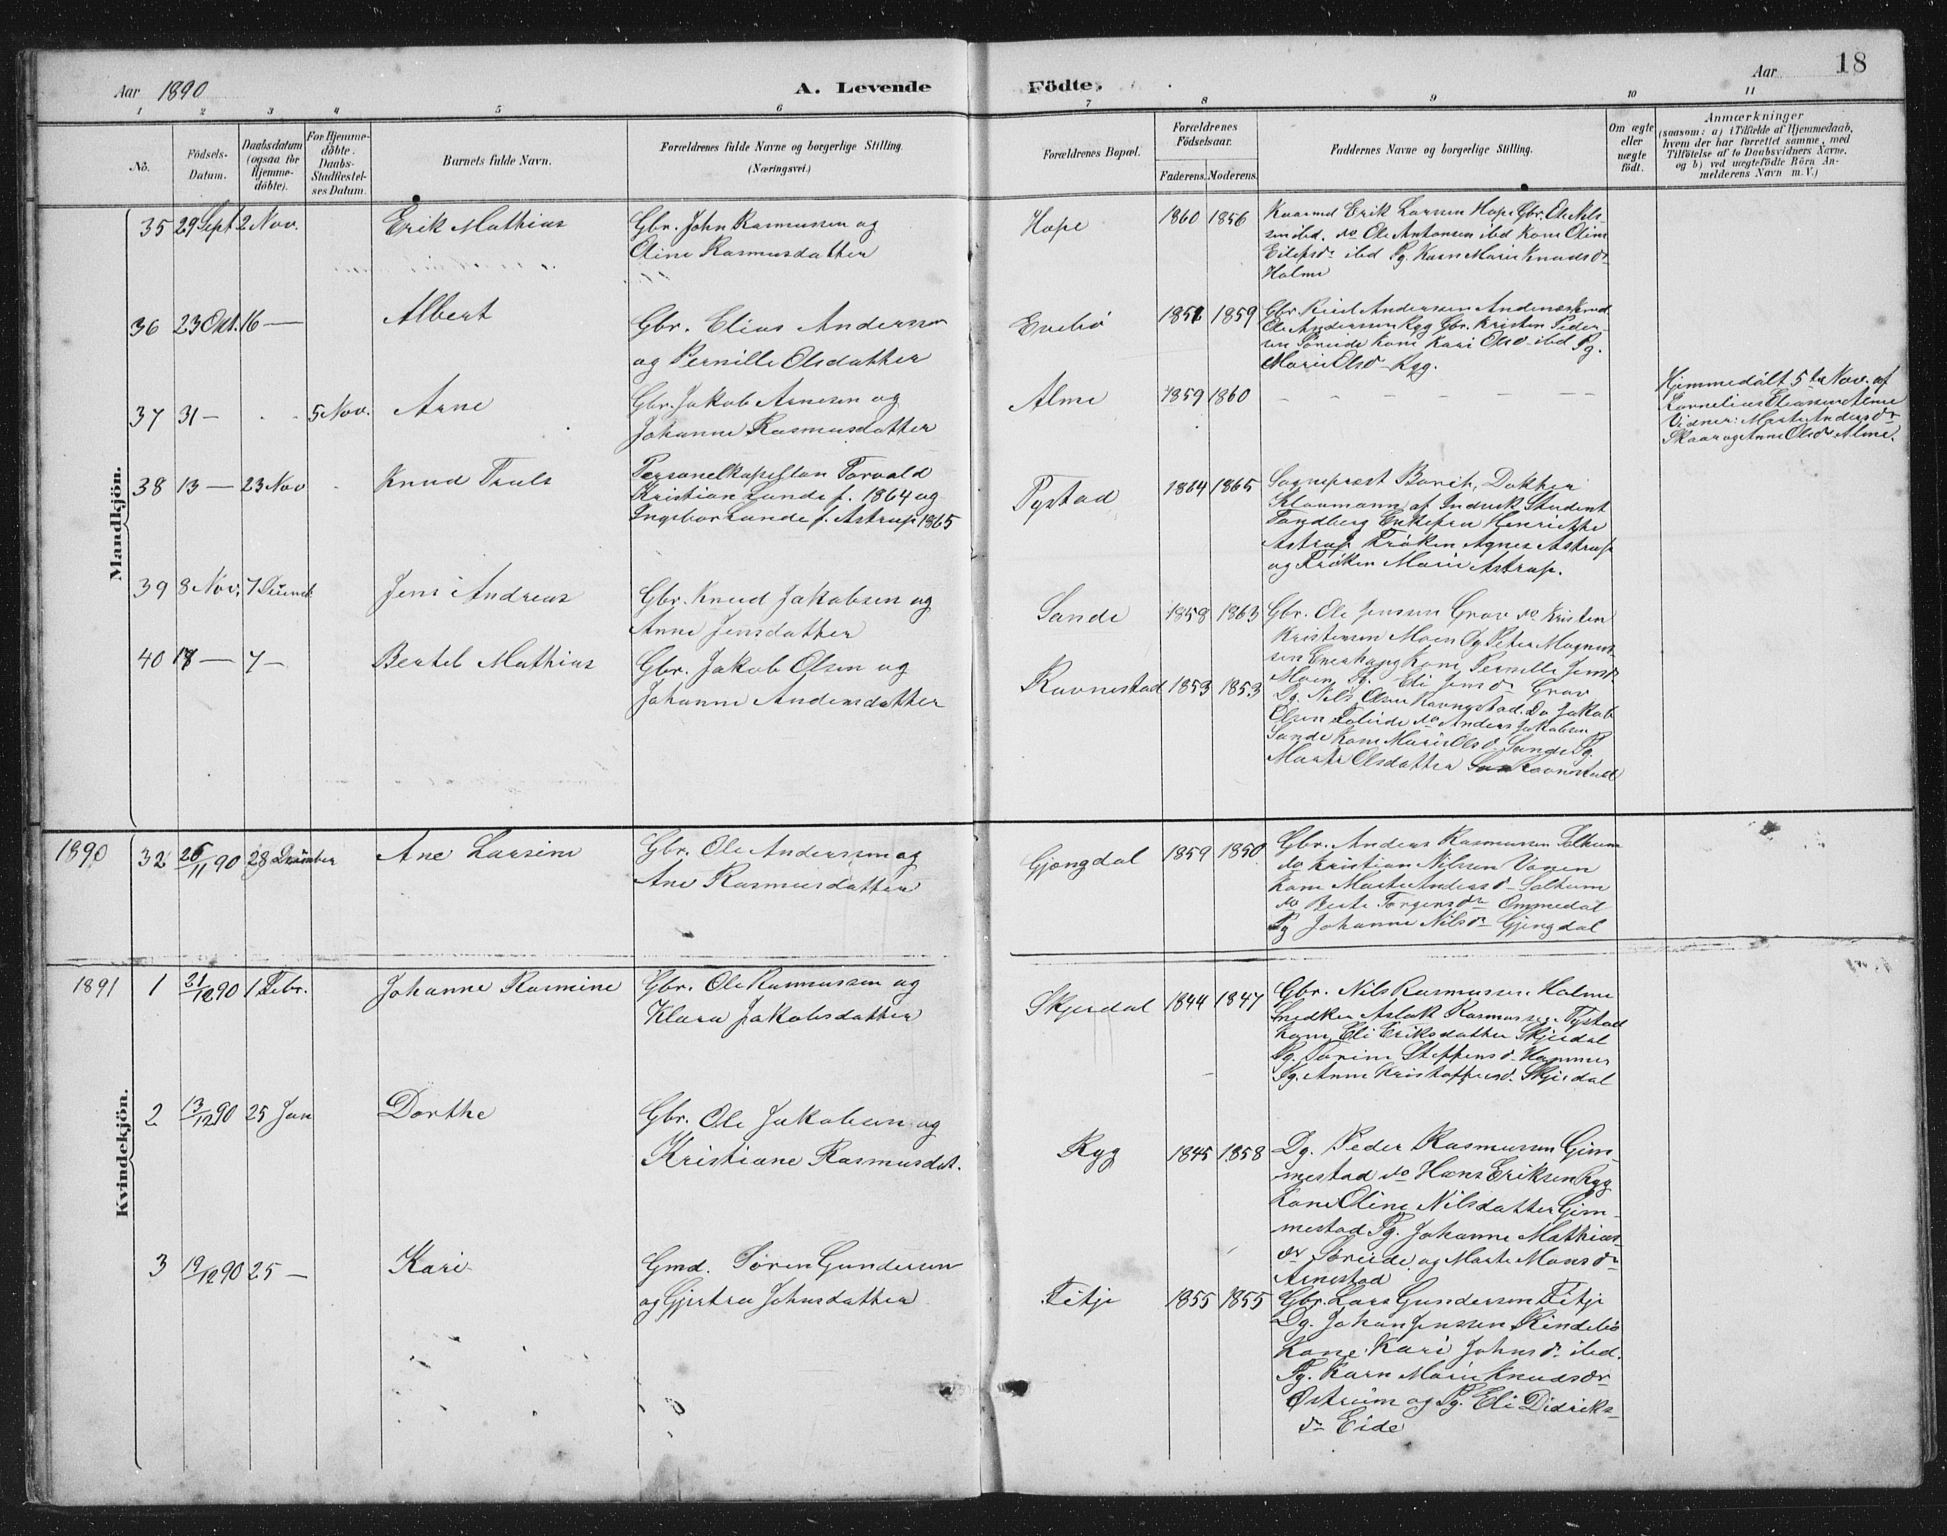 Aar 1890
A. Levende
Födte.
Aar 18
1 2 3 4 5 6 7 8 9 10 11
No.
Födsels-
Datum.
Daabsdatum
(ogsaa for
Hjemme-
döbte).
For Hjemme-
döbte:
Daabs-
Stadfæstel-
ses Datum.
Barnets fulde Navn.
Forældrenes fulde Navne og borgerlige Stilling.
(Næringsvei.)
Forældrenes Bopæl.
Forældrenes
Födselsaar.
Faderens. Moderens.
Faddernes Navne og borgerlige Stilling.
Om ægte
eller
uægte
födt.
Anmærkninger
(saasom: a) i Tilfælde af Hjemmedaab,
hvem der har forrettet samme, med
Tilföielse af to Daabsvidners Navne.
og b) ved uægtefödte Börn An-
melderens Navn m. V.)
Mandkjön.
35 29 Sept 2 Nov. Erik Mathias
Gbr. John Rasmussen og
Oline Rasmusdatter
Hope 1860 1856
Kaarmd Erik Larsen Hope Gbr. Ole Nils-
sen ibd. do Ole Antonsen ibd Kone Oline
Eilifsdr ibd Pg. Karn Marie Knudsdr
Holme
36 23 Okt. 16 — Albert
Gbr. Elias Andersen
og Pernille Olsdatter
Evebö 1859
Ole Andersen Ryg Gbr. Kristen Peder-
sen Söreide Kone Kari Olsd ibd Pg.
Marie Olsd Ryg.
37 31 — 5 Nov. Arne
Gbr. Jakob Arnesen og
Johanne Rasmusdatter
Alme 1859 1860
Hjemmedöbt 5te Nov. af
Kornelius Eliassen Alme
Vidner: Marte Andersdr
Skaar og Anne Olsdr Alme.
38 13 — 23 Nov Knud Truls
Personelkapellan Torvald
Kristian Lunde f. 1864 og
Ingebor Lunde f. Astrup 1865
Tystad 1864 1865
Sogneprest Dokker
Klovmann af Indvik Student
Tandberg Enkefru Henriette
Astrup Fröken Agnes Astrup
og Fröken Marie Astrup.
39 8 Nov. 7 Jens Andreas
Gbr. Knud Jakobsen og
Anne Jensdatter
Sande 1858 1863
Gbr. Ole Jensen Grov do Kristen
Kristensen Moen Dg Peter Magnus-
sen Kone Pernille Jensd.
Moen Pg. Eli Jensdr Grov
40 18 — 7 — Bertel Mathias
Gbr. Jakob Olsen og
Johanne Andersdatter
Ravnestad 1853 1853
Dg. Nils Olsen Ravnestad. Do Jakob
Olsen do Anders Jakobsen
Sande Kone Marie Olsd. Sande Pg.
Marte Olsdatter Ravnestad
Kvindekjön.
1890 32 26/11 90 28 Desember Ane Larsine
Gbr. Ole Andersen og
Ane Rasmusdatter
Gjengdal 1859 1850
Gbr. Anders Rasmussen Solheim
do Kristian Nilssen Vonen
Kone Marte Andersd Solheim
do Berte Torgersdr Ommedal
Pg Johanne Nilsdr Gjengdal
1891 1 21/12 90 1 Febr. Johanne Rasmine
Gbr. Ole Rasmussen og
Klara Jakobsdatter
Skjerdal 1844 1847
Gbr. Nils Rasmussen Holme
Snedker Aslak Rasmussen Tystad
Kone Eli Eriksdatter Skjerdal
Pg. Sörine Steffensd. Hammer
Pg. Anne Kristoffersd. Skjerdal
2 13/12 90 25 Jan Dorthe
Gbr. Ole Jakobsen og
Kristiane Rasmusdat.
Ryg 1845 1858
Dg. Peder Rasmussen Gim-
mestad do Hans Eriksen Ryg
Kone Oline Nilsdatter Gim-
mestad Pg. Johanne Mathias-
dr Söreide og Marte Monsdr
Arnestad
3 19/12 90 25 — Kari
Gmd. Sören Gundersen
og Gjertru Johnsdatter
Fitje 1855 1855
Gbr. Lars Gundersen Fitje
Dg. Johan Jenssen Rindebö
Kone Kari Johnsdr ibd.
Pg. Karn Marie Knudsdr
Östreim og Pg. Eli Didriks-
dr Eide